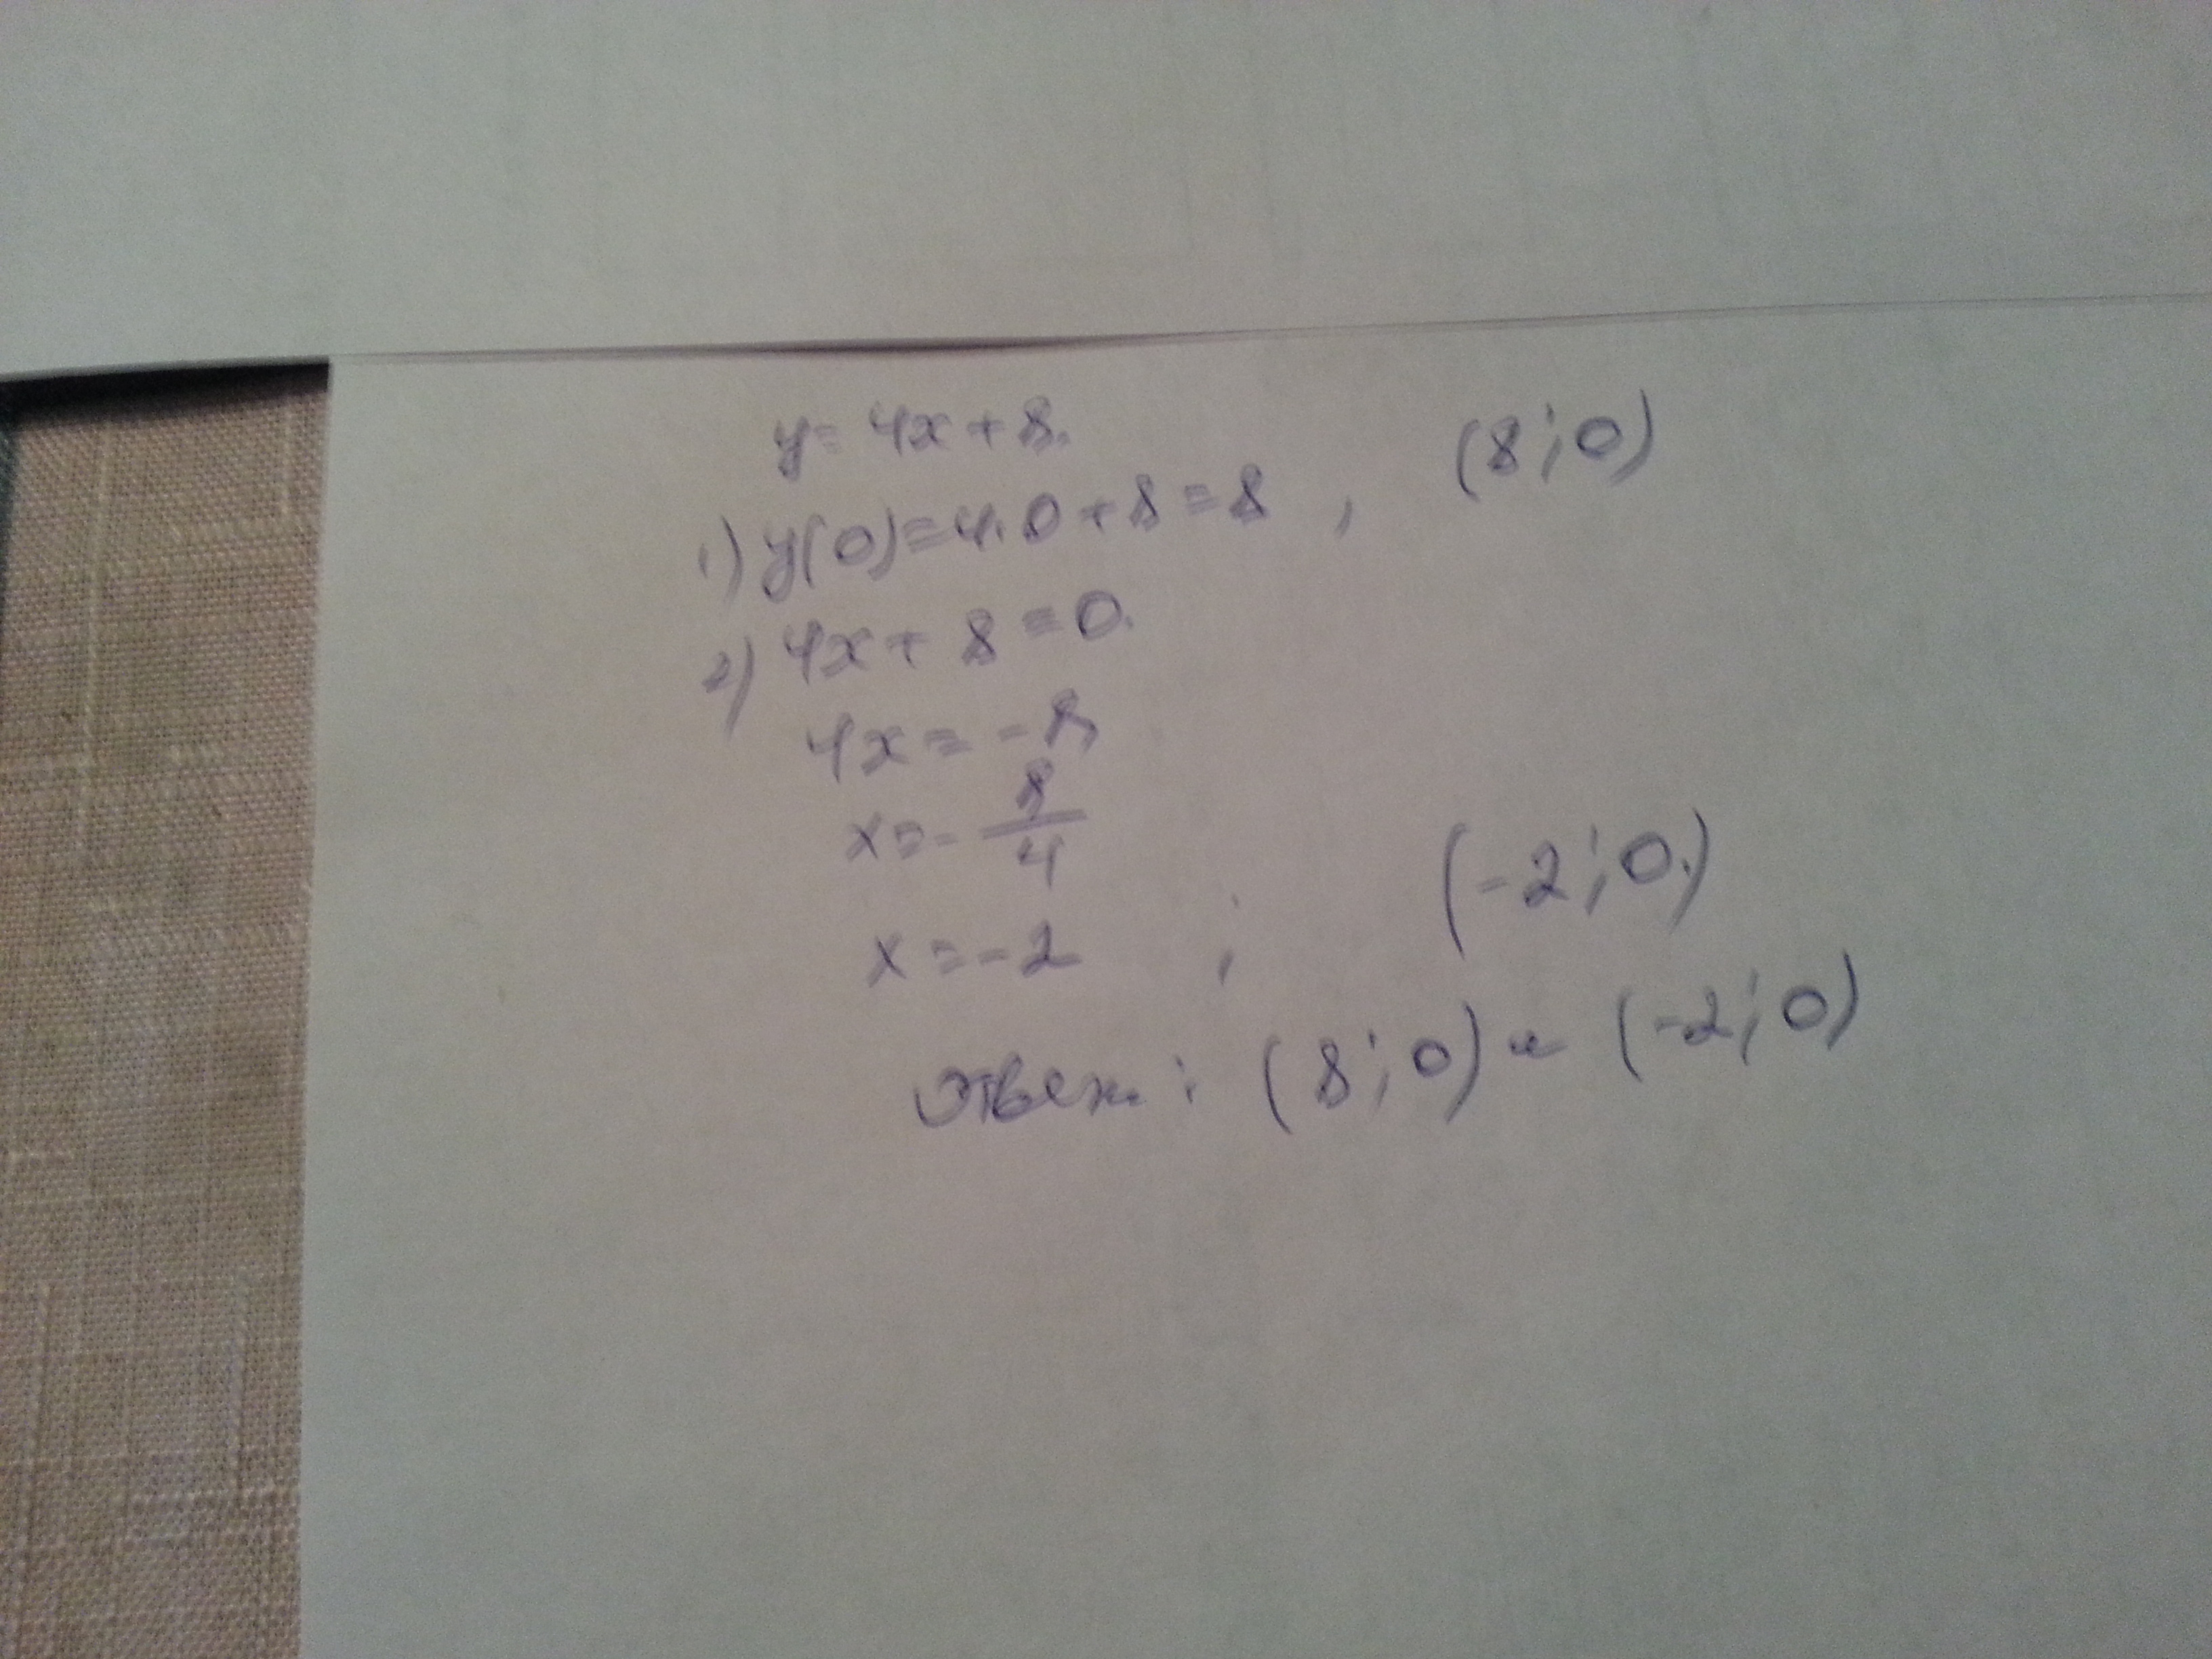 y = 4x + 8.
1) y(0) = 4·0 + 8 = 8 , (8; 0)
2) 4x + 8 = 0.
4x = -8
x = - 8/4
x = -2 ; (-2; 0.)
Ответ: (8; 0) и (-2; 0)